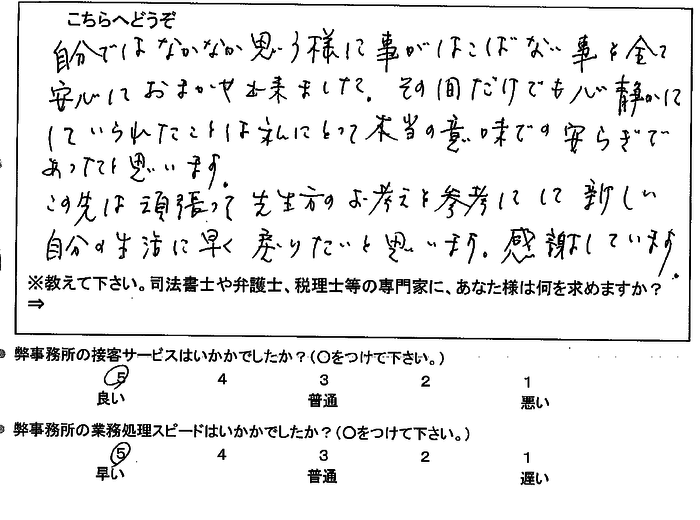 こちらへどうぞ
自分ではなかなか思う様に事がはこばない事を全て
安心しておまかせ出来ました。その間だけでも心静かに
していられたことは私にとって本当の意味での安らぎで
あったと思います。
この先は頑張って先生方のお考えを参考にして新しい
自分の生活に早く戻りたいと思います。感謝しています。
※教えて下さい。司法書士や弁護士、税理士等の専門家に、あなた様は何を求めますか？
⇒
弊事務所の接客サービスはいかかでしたか？（○をつけて下さい。）
5 4 3 2 1
良い 普通 悪い
弊事務所の業務処理スピードはいかかでしたか？（○をつけて下さい。）
5 4 3 2 1
早い 普通 遅い